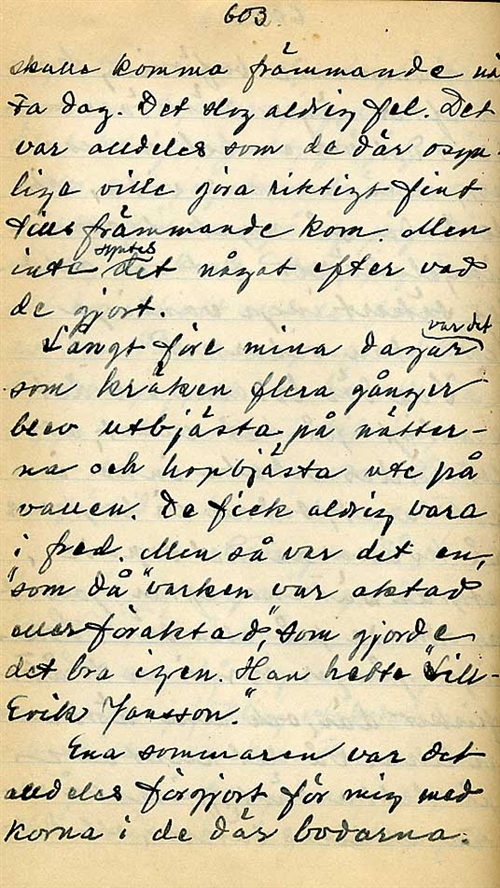 603
skulle komma främmande nä
sta dag. Det slog aldrig fel. Det
var alldeles som de där osyn-
liga ville göra riktigt fint
tills främmande kom. Men
inte syntes det något efter vad
de gjort.
Långt före mina dagar var det
som kräken flera gånger
blev utbjästa på nätter-
na och hopbjästa ute på
vallen. De fick aldrig vara
i fred. Men så var det en,
"som då "varken var aktad
eller föraktad", som gjorde
det bra igen. Han hette "Lill-
Erik Jansson."
Ena sommaren var det
alldeles förgjort för mig med
korna i de där bodarna.